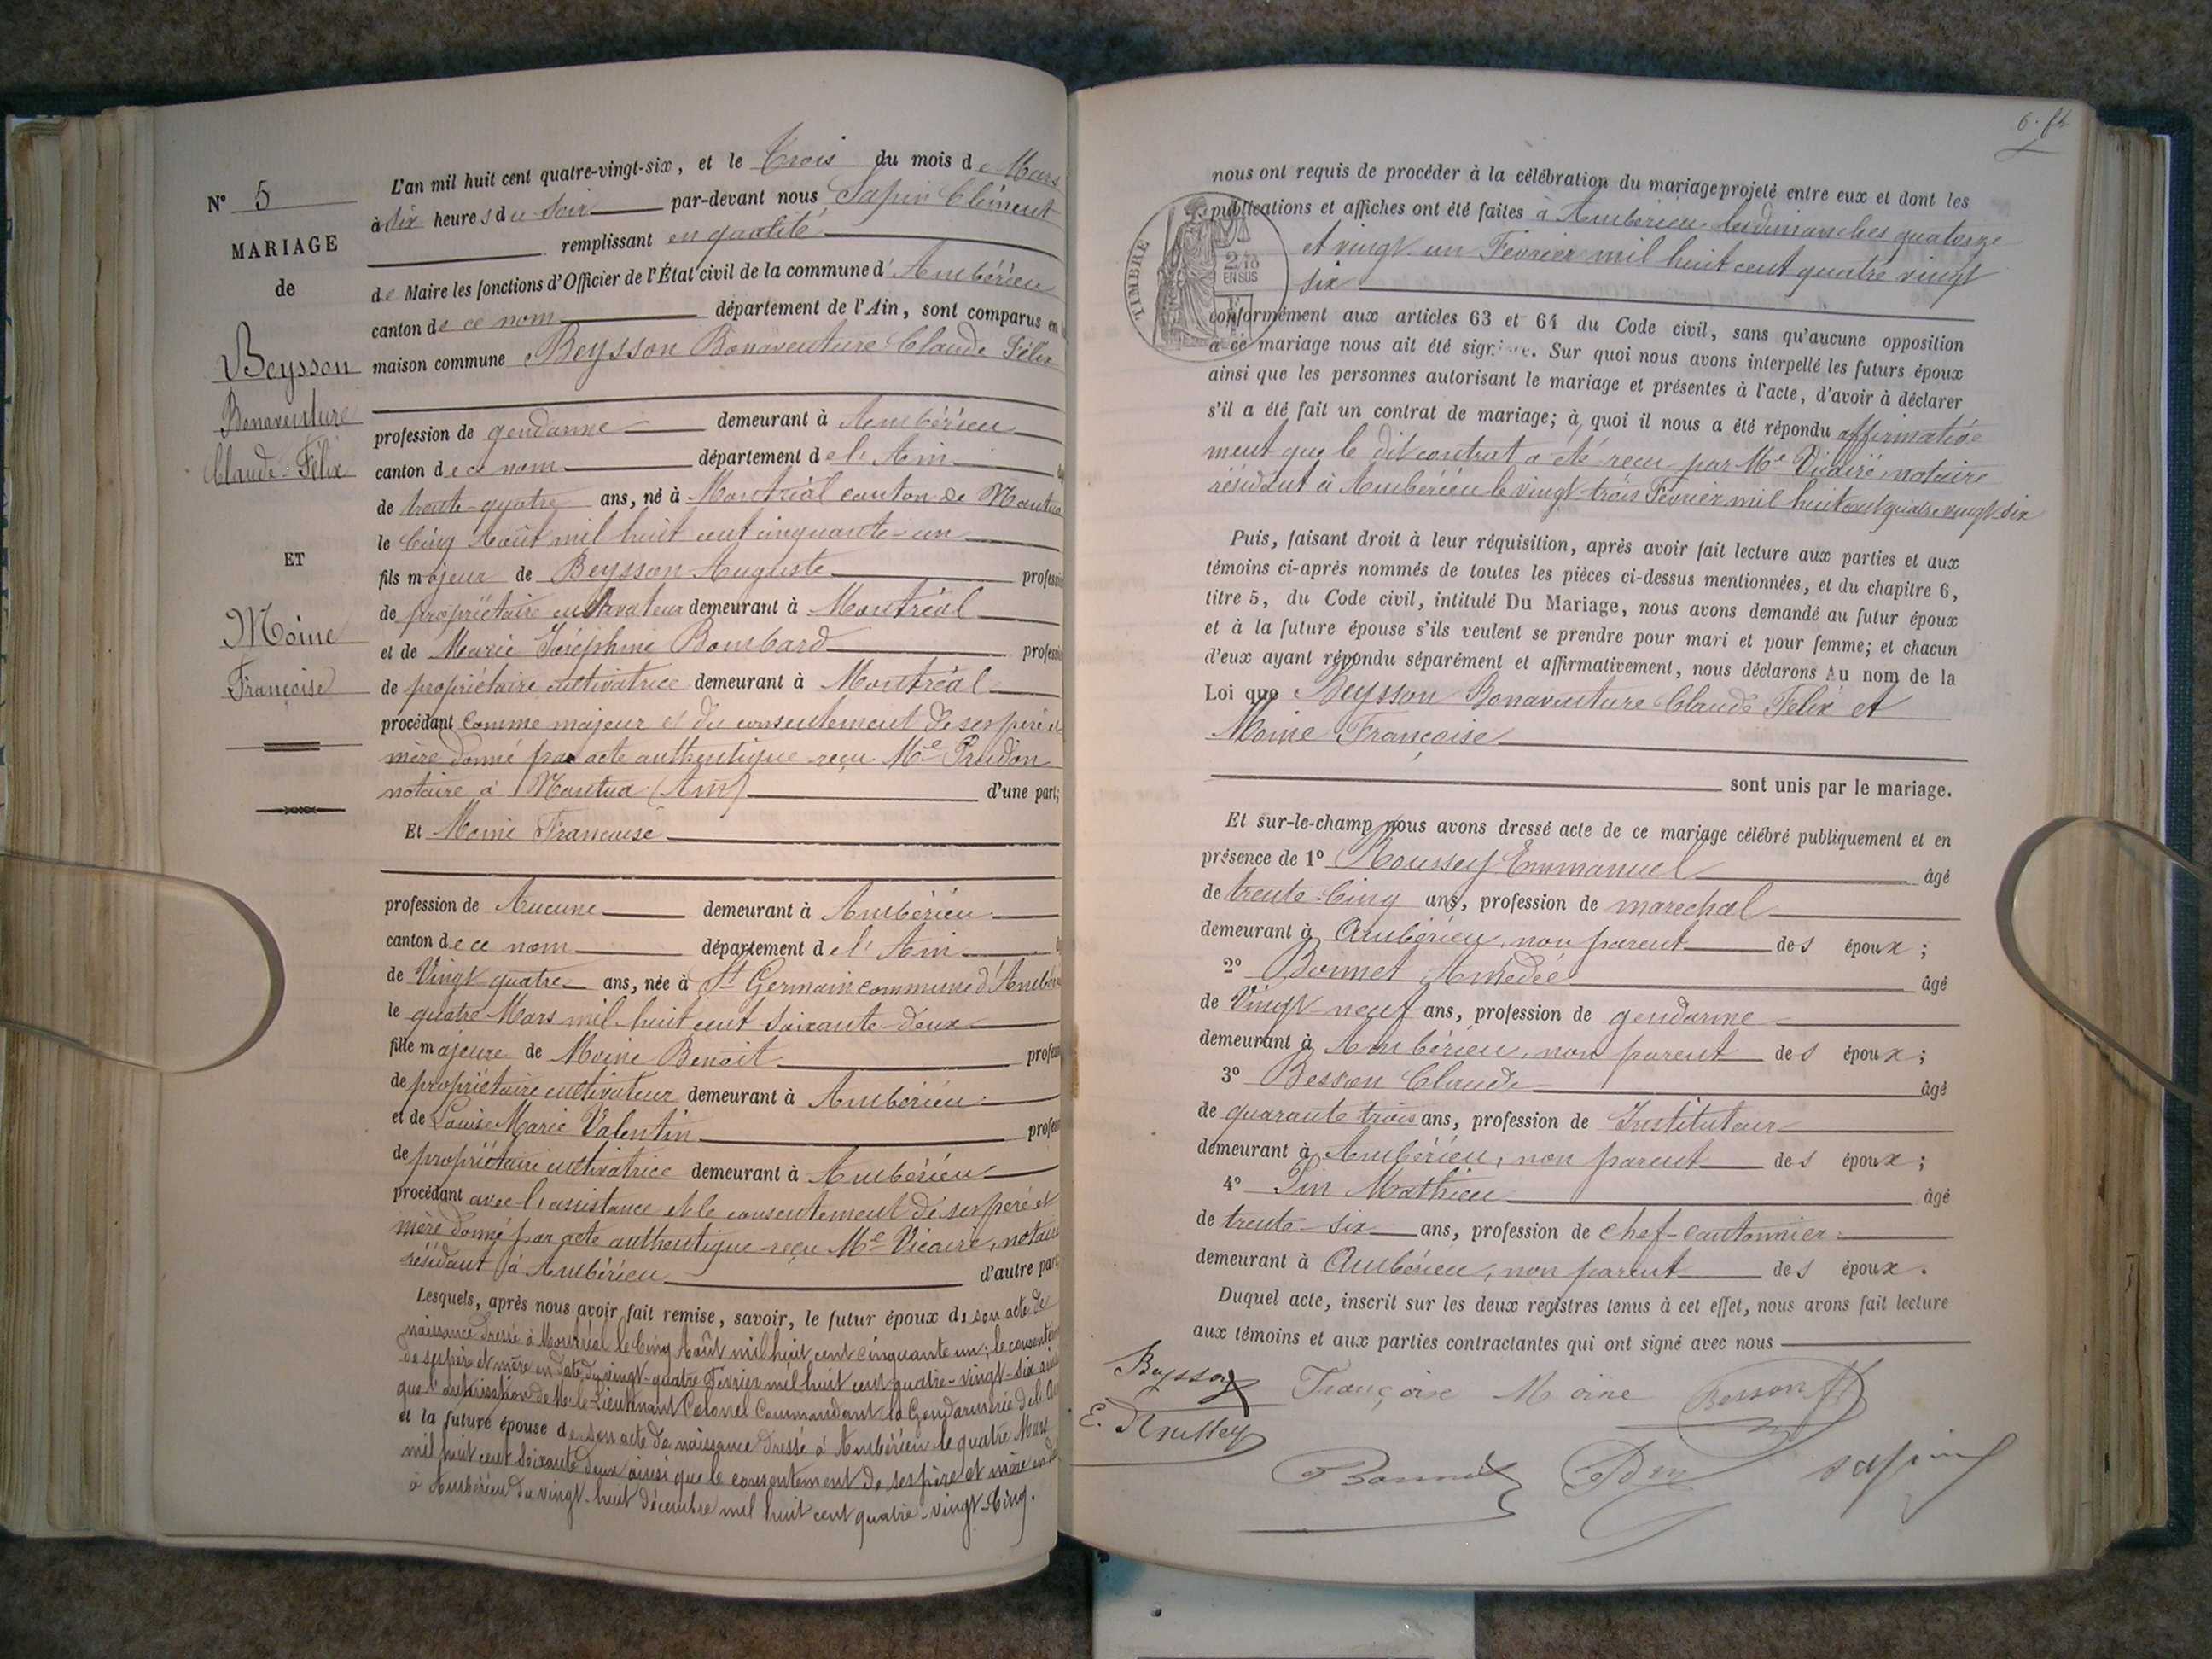 N° 5
MARIAGE
de
Beysson
Bonaventure
Claude-Félix
ET
Moine
Françoise
L'an mil huit cent quatre-vingt-six, et le Trois du mois de Mars
à six heures du soir par-devant nous Sapin Clément
remplissant en qualité
de Maire les fonctions d'Officier de l'État civil de la commune d'Ambérieu
canton de ce nom département de l'Ain, sont comparus en
maison commune Beysson Bonaventure Claude Félix
profession de gendarme demeurant à Ambérieu
canton de ce nom département de l'Ain
de trente-quatre ans, né à Montréal canton de Nantua
le Cinq Août mil huit cent cinquante-un
fils majeur de Beysson Auguste profession
de propriétaire cultivateur demeurant à Montréal
et de Marie Joséphine Bombard profession
de propriétaire cultivatrice demeurant à Montréal
procédant comme majeur et du consentement de ses père et
mère donné par acte authentique reçu Me Prudon
notaire à Nantua (Ain) d'une part;
Et Moine Françoise
profession de Aucune demeurant à Ambérieu
canton de ce nom département de l'Ain
de Vingt quatre ans, née à St Germain commune d'Ambérieu
le quatre Mars mil huit cent soixante-deux
fille majeure de Moine Benoit profession
de propriétaire cultivateur demeurant à Ambérieu
et de Louise Marie Valentin profession
de propriétaire cultivatrice demeurant à Ambérieu
procédant avec l'assistance et le consentement de ses père et
mère donné par acte authentique reçu Me Vicaire, notaire
résidant à Ambérieu d'autre part
Lesquels, après nous avoir fait remise, savoir, le futur époux de son acte de
naissance dressé à Montréal le Cinq Août mil huit cent cinquante un; le consentement
de ses père et mère en date du vingt-quatre Février mil huit cent quatre-vingt-six ainsi
que l'autorisation de Mr le Lieutenant Colonel Commandant la Gendarmerie de l'Ain
et la future épouse de son acte de naissance dressé à Ambérieu le quatre Mars
mil huit cent soixante deux ainsi que le consentement de ses père et mère en date
à Ambérieu du vingt-huit décembre mil huit cent quatre-vingt-Cinq.
6.
nous ont requis de procéder à la célébration du mariage projeté entre eux et dont les
publications et affiches ont été faites à Ambérieu les dimanches quatorze
et vingt un Février mil huit cent quatre vingt
six
TIMBRE
2/10
EN SUS
conformément aux articles 63 et 64 du Code civil, sans qu'aucune opposition
à ce mariage nous ait été signifiée. Sur quoi nous avons interpellé les futurs époux
ainsi que les personnes autorisant le mariage et présentes à l'acte, d'avoir à déclarer
s'il a été fait un contrat de mariage; à quoi il nous a été répondu affirmative
ment que le dit contrat a été reçu par Me Vicaire notaire
résidant à Ambérieu le vingt-trois Février mil huit cent quatre vingt-six
Puis, faisant droit à leur réquisition, après avoir fait lecture aux parties et aux
témoins ci-après nommés de toutes les pièces ci-dessus mentionnées, et du chapitre 6,
titre 5, du Code civil, intitulé Du Mariage, nous avons demandé au futur époux
et à la future épouse s'ils veulent se prendre pour mari et pour femme; et chacun
d'eux ayant répondu séparément et affirmativement, nous déclarons Au nom de la
Loi que Beysson Bonaventure Claude Félix et
Moine Françoise
sont unis par le mariage.
Et sur-le-champ nous avons dressé acte de ce mariage célébré publiquement et en
présence de 1° Roussey Emmanuel âgé
de trente-Cinq ans, profession de marechal
demeurant à Ambérieu, non parent des époux;
2° Bonnet Amedée âgé
de Vingt neuf ans, profession de gendarme
demeurant à Ambérieu, non parent des époux;
3° Besson Claude âgé
de quarante trois ans, profession de Instituteur
demeurant à Ambérieu, non parent des époux;
4° Pin Mathieu âgé
de trente-six ans, profession de chef-cantonnier
demeurant à Ambérieu, non parent des époux.
Duquel acte, inscrit sur les deux registres tenus à cet effet, nous avons fait lecture
aux témoins et aux parties contractantes qui ont signé avec nous
Beysson Françoise Moine Besson
E. Roussey
Bonnet Pin Sapin